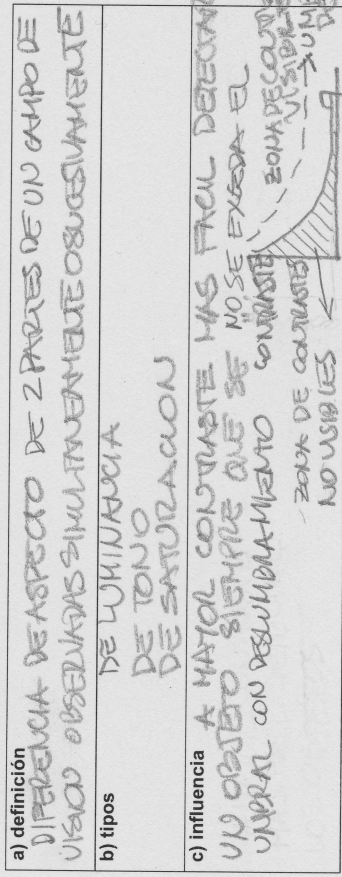 a) definición
DIFERENCIA DE ASPECTO DE 2 PARTES DE UN CAMPO DE
VISION OBSERVADAS SIMULTANEAMENTE O SUCESIVAMENTE
b) tipos
DE LUMINANCIA
DE TONO
DE SATURACION
c) influencia
A MAYOR CONTRASTE MAS FACIL DETECTAR
UN OBJETO SIEMPRE QUE SE NO SE EXCEDA EL
UMBRAL CON DESLUMBRAMIENTO
CONTRASTE
ZONA DE CONTRASTES
NO VISIBLES